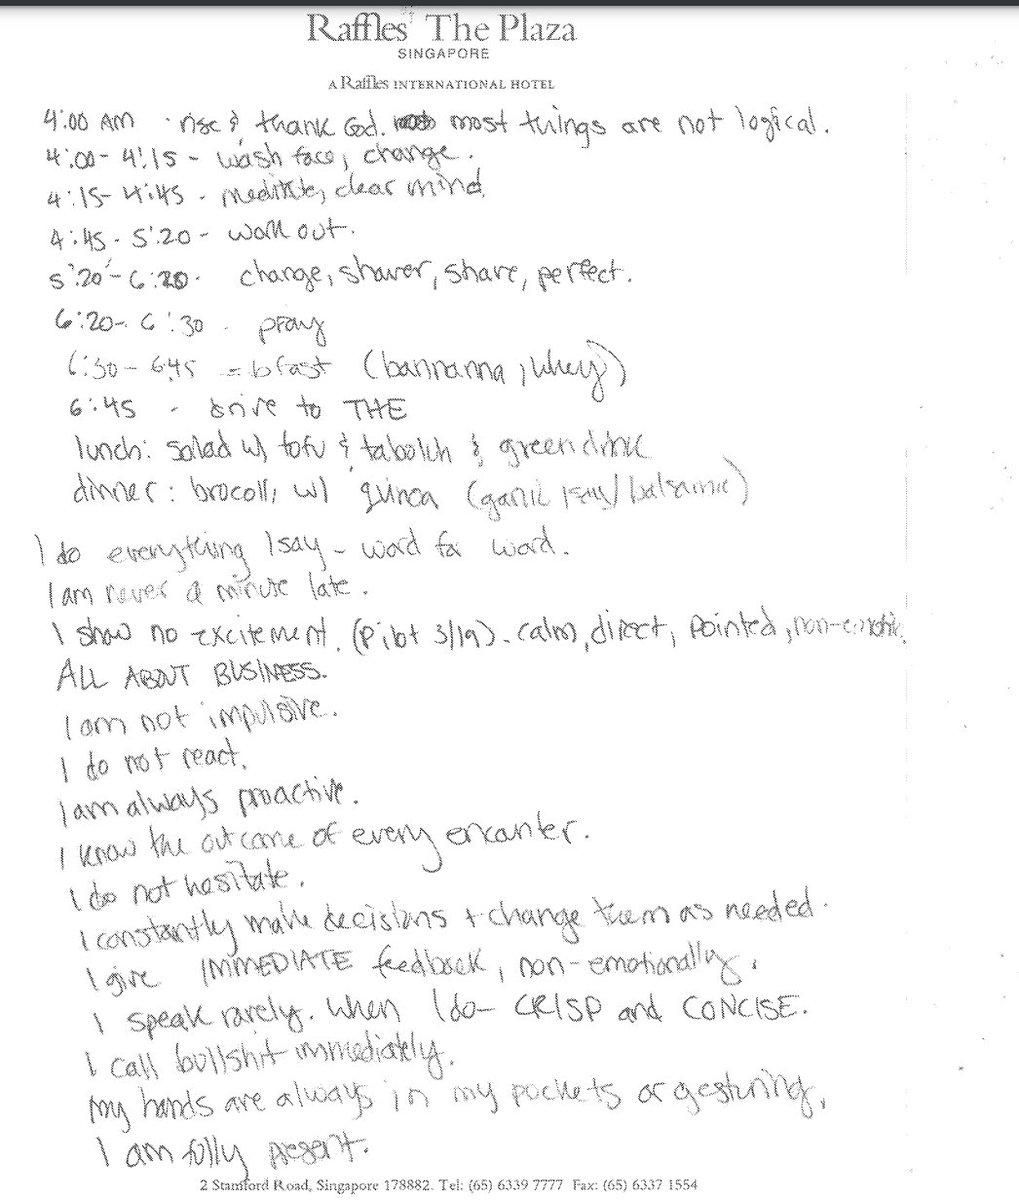 Raffles The Plaza
SINGAPORE
A Raffles INTERNATIONAL HOTEL
4:00 AM · rise & thank God. most things are not logical.
4:00 - 4:15 - wash face, change.
4:15 - 4:45 - meditate, clear mind
4:45 - 5:20 - work out.
5:20 - 6:20 - change, shower, shave, perfect.
6:20 - 6:30 - pray
6:30 - 6:45 = bfast (bannanna, whey)
6:45 - drive to THE
lunch: salad w/ tofu & taboleh & green drink
dinner: brocolli w/ quinoa (
I do everything I say - word for word.
I am never a minute late.
I show no excitement. (Pilot 3/19). calm, direct, pointed, non-emotional.
ALL ABOUT BUSINESS.
I am not impulsive.
I do not react.
I am always proactive.
I know the outcome of every encounter.
I do not hesitate.
I constantly make decisions + change them as needed.
I give IMMEDIATE feedback, non-emotionally.
I speak rarely. When I do - CRISP and CONCISE.
I call bullshit immediately.
my hands are always in my pockets or gesturing.
I am fully present.
2 Stamford Road, Singapore 178882. Tel: (65) 6339 7777 Fax: (65) 6337 1554